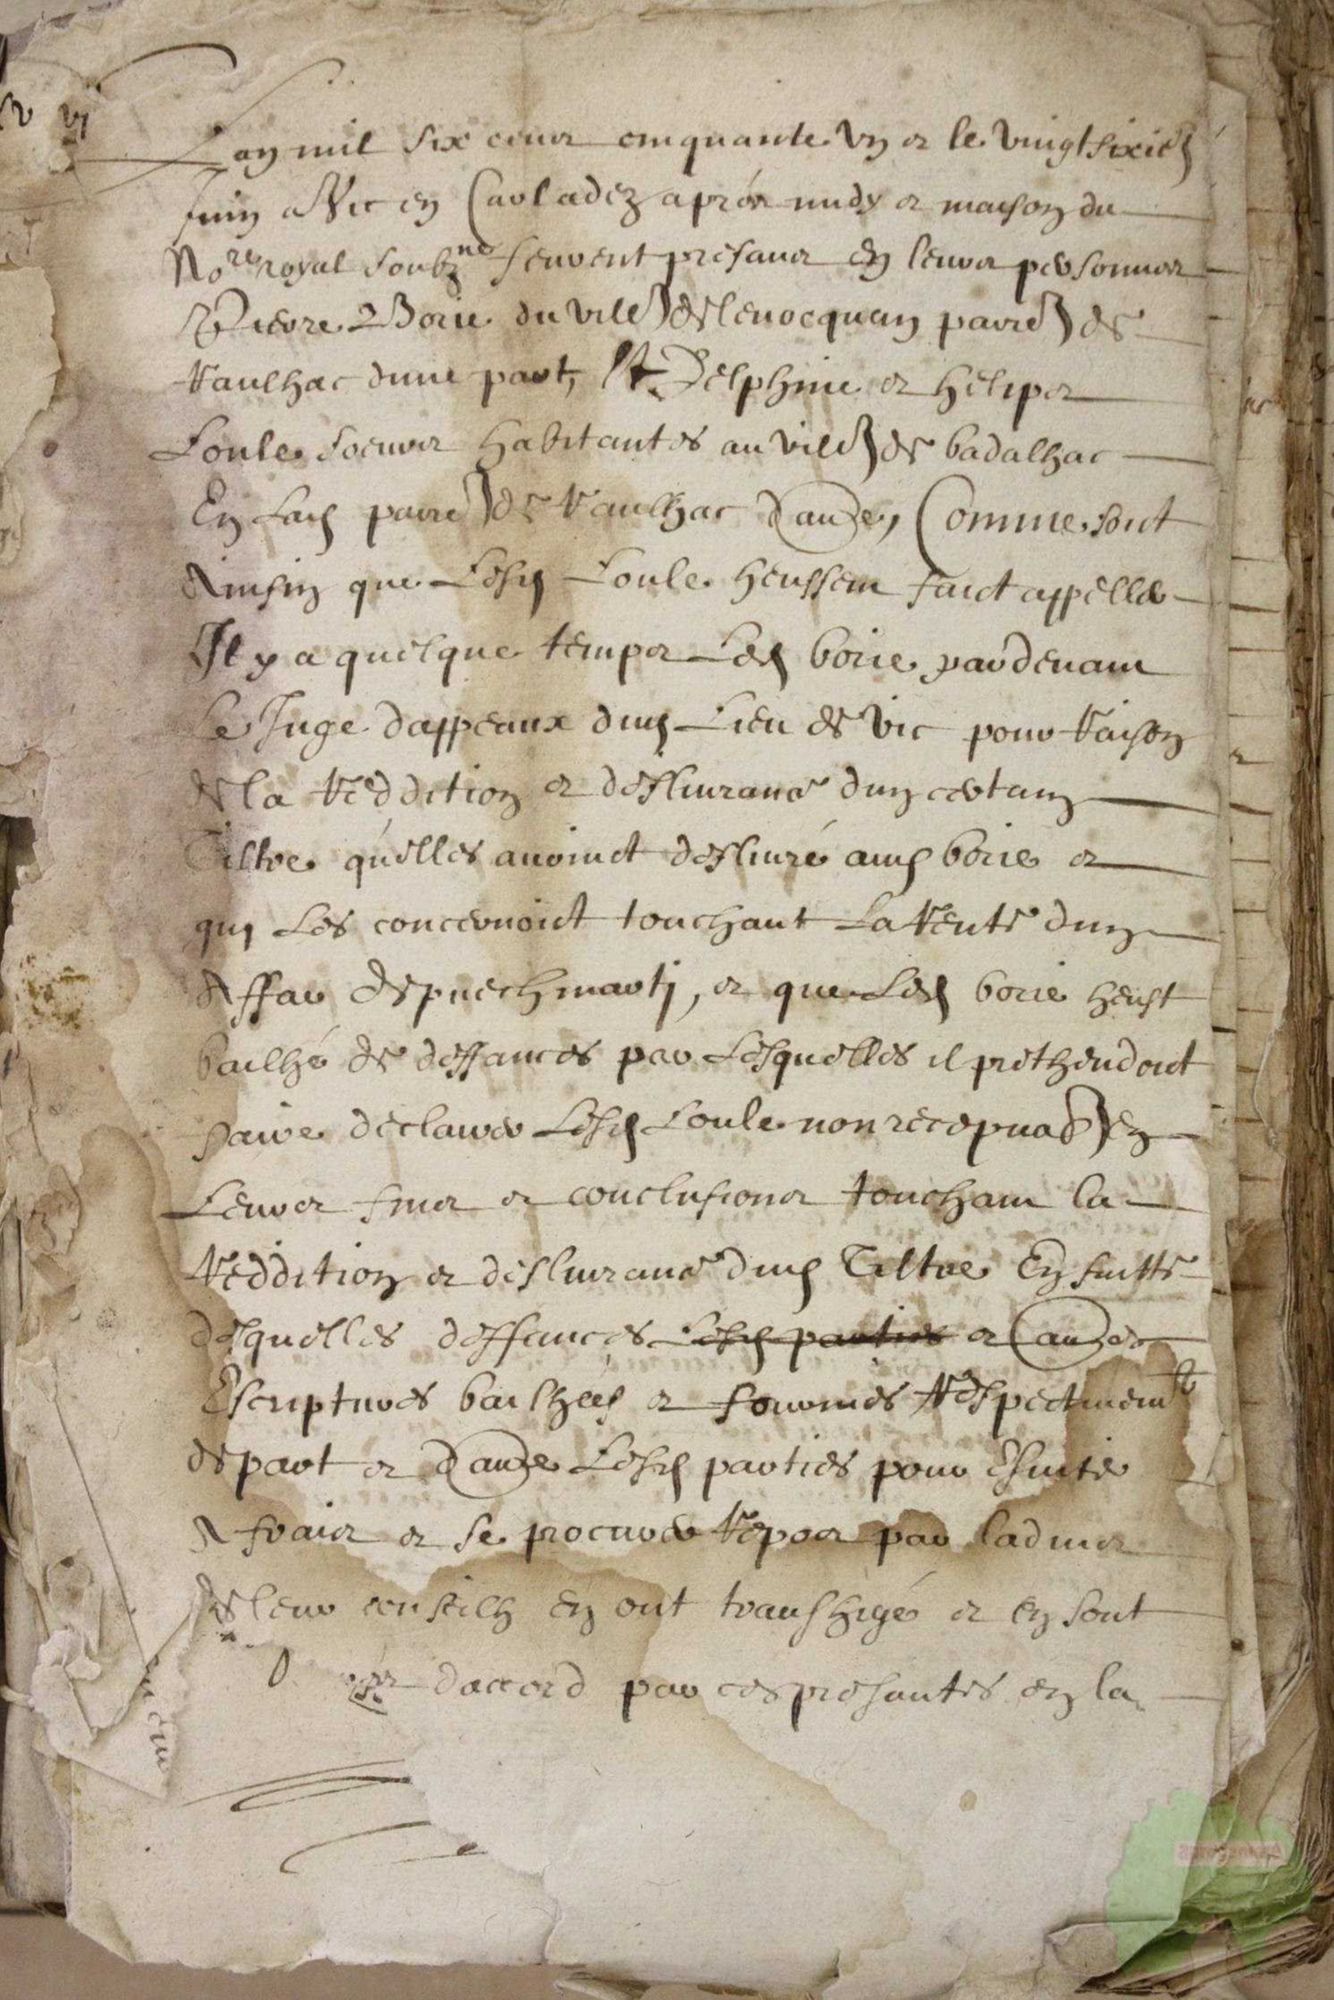 Lan mil six cens cinquante un et le vingtsixie
Juin a Vic en Carladez apres midy et maison du
No.re royal soubz.ne feurent presans en leurs personnes
Pierre Borie du vill de leuocquan parre de
Raulhac dune part, Et Delphine et helips
Soule soeurs habitantes au vill de badalhac
En lad parre de Raulhac dautre, Comme soit
Ainsin que Lesd Soule heussem faict appeller
Il y a quelque temps Led borie pardevant
Le Juge dappeaux dud Lieu de Vic pour Raison
de la Reddition et deslivrance dun certain
Tiltre qu'elles avoinct deslivré aud borie et
quy Les concernoict touchant La Vente dun
Affar de puechmarty, et que Led borie heust
bailhé de deffances par Lesquelles il prethendoict
faire declarer Lesd Soule non recepvab en
Leurs fins et conclusions touchant la
Reddition et deslivrance dud Tiltre En suitte
desquelles deffences Lesd parties et autres
Escriptures bailhées et fournies Respectivemt
de part et dautre Lesd parties pour Esviter
A fraix et se procurer Repos par ladvis
de leur conseilh en ont transhigé et en sont
daccord par ces presantes en la